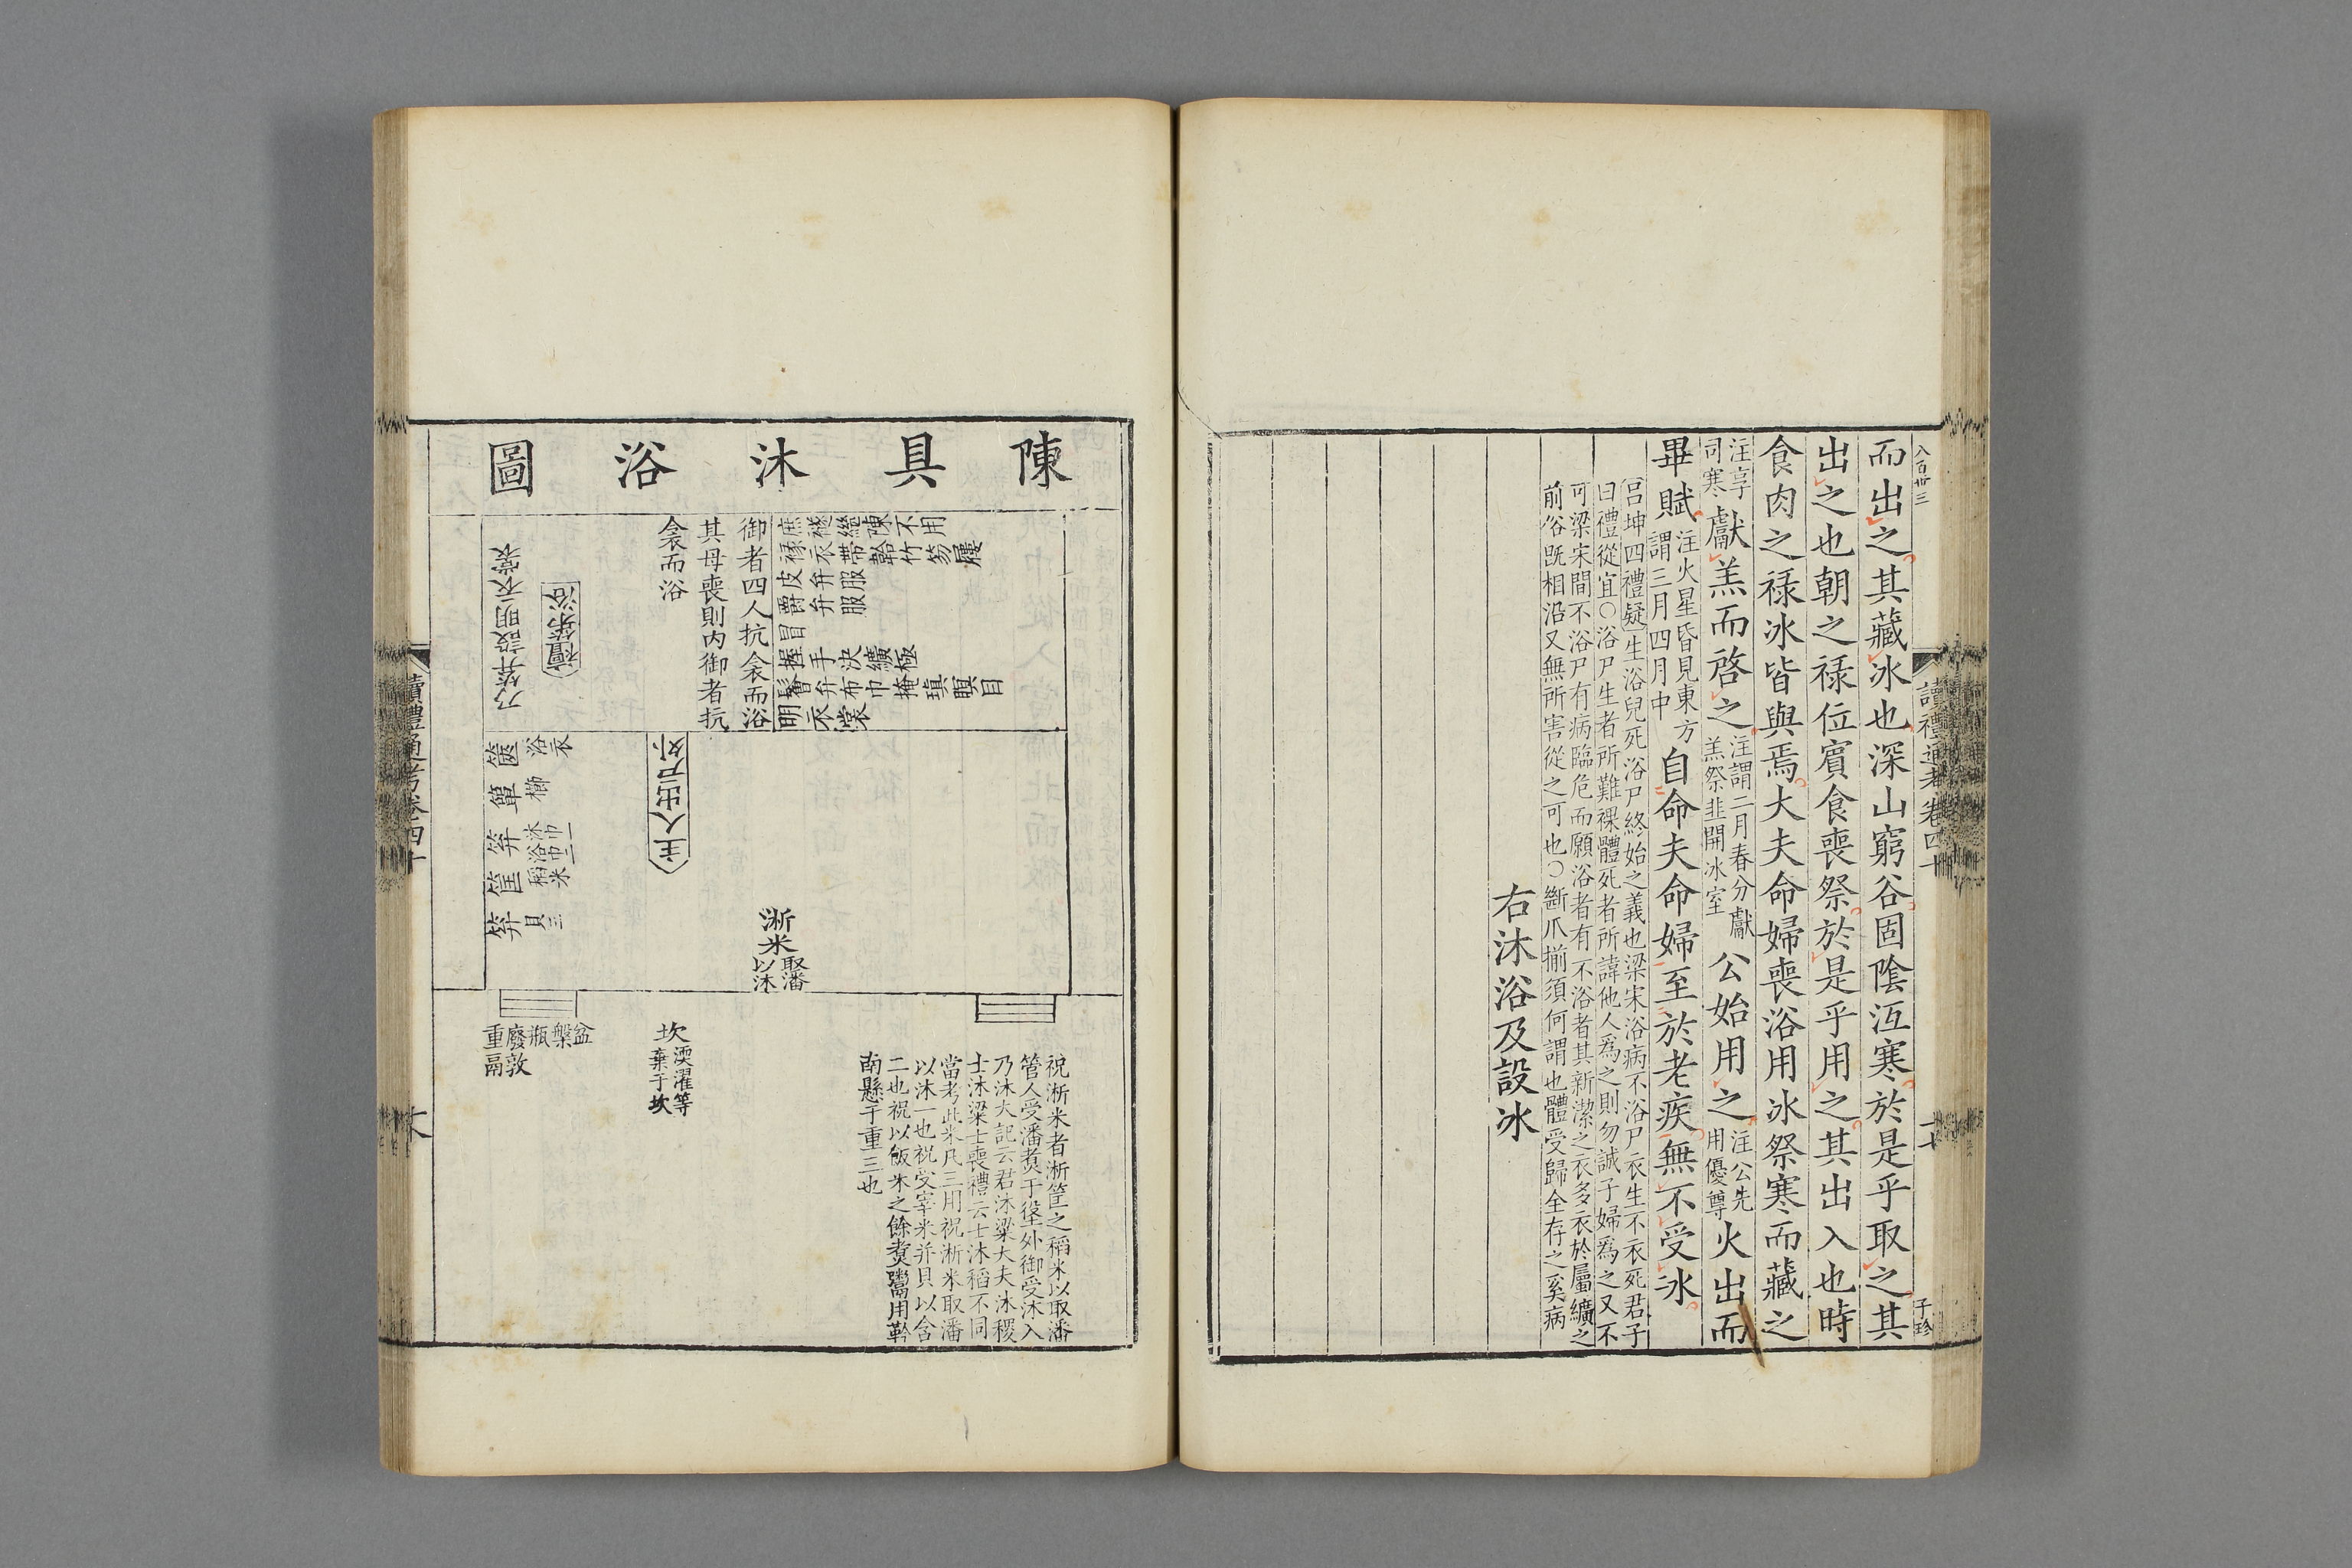 八百卅三
而出之其藏冰也深山窮谷固陰沍寒於是乎取之其
出之也朝之祿位賔食喪祭於是乎用之其出入也時
食肉之祿冰皆與焉大夫命婦喪浴用冰祭寒而藏之
注享司寒獻羔而啓之注謂二月春分獻羔祭韭開冰室公始用之注公先用優尊火出而
畢賦注火星昏見東方謂三月四月中自命夫命婦至於老疾無不受冰
呂坤四禮疑生浴兒死浴尸終始之義也梁宋浴病不浴尸衣生不衣死君子
曰禮從宜○浴尸生者所難裸體死者所諱他人為之則勿誠子婦為之又不
可梁宋間不浴尸有病臨危而願浴者有不浴者其新潔之衣多衣於屬纊之
前俗旣相沿又無所害從之可也○斷爪揃須何謂也體受歸全存之奚病
右沐浴及設冰
讀禮通考卷四十
十七
子珍
陳具沐浴圖
不用
陳竹笏屨
繼帶韐
襚衣弁服
庶襐皮弁服
爵弁服
冒
握手
決
纊極
鬠弁布巾掩瑱瞑目
明衣裳
御者四人抗衾而浴
其母喪則内御者抗
衾而浴
襢笫浴
乃笄設明衣裳
主人出戶外
篋浴衣
簞櫛
笲沐巾一浴巾二
筐稻米
笲貝三
淅米取潘以沐
盆槃瓶廢敦重鬲
坎渜濯等棄于坎
祝淅米者淅筐之稻米以取潘
管人受潘煑于垼外御受沐入
乃沐大記云君沐粱大夫沐稷
士沐粱士喪禮云士沐稻不同
當考此米凡三用祝淅米取潘
以沐一也祝受宰米并貝以含
二也祝以飯米之餘煑鬻用靲
南懸于重三也
讀禮通考卷四十